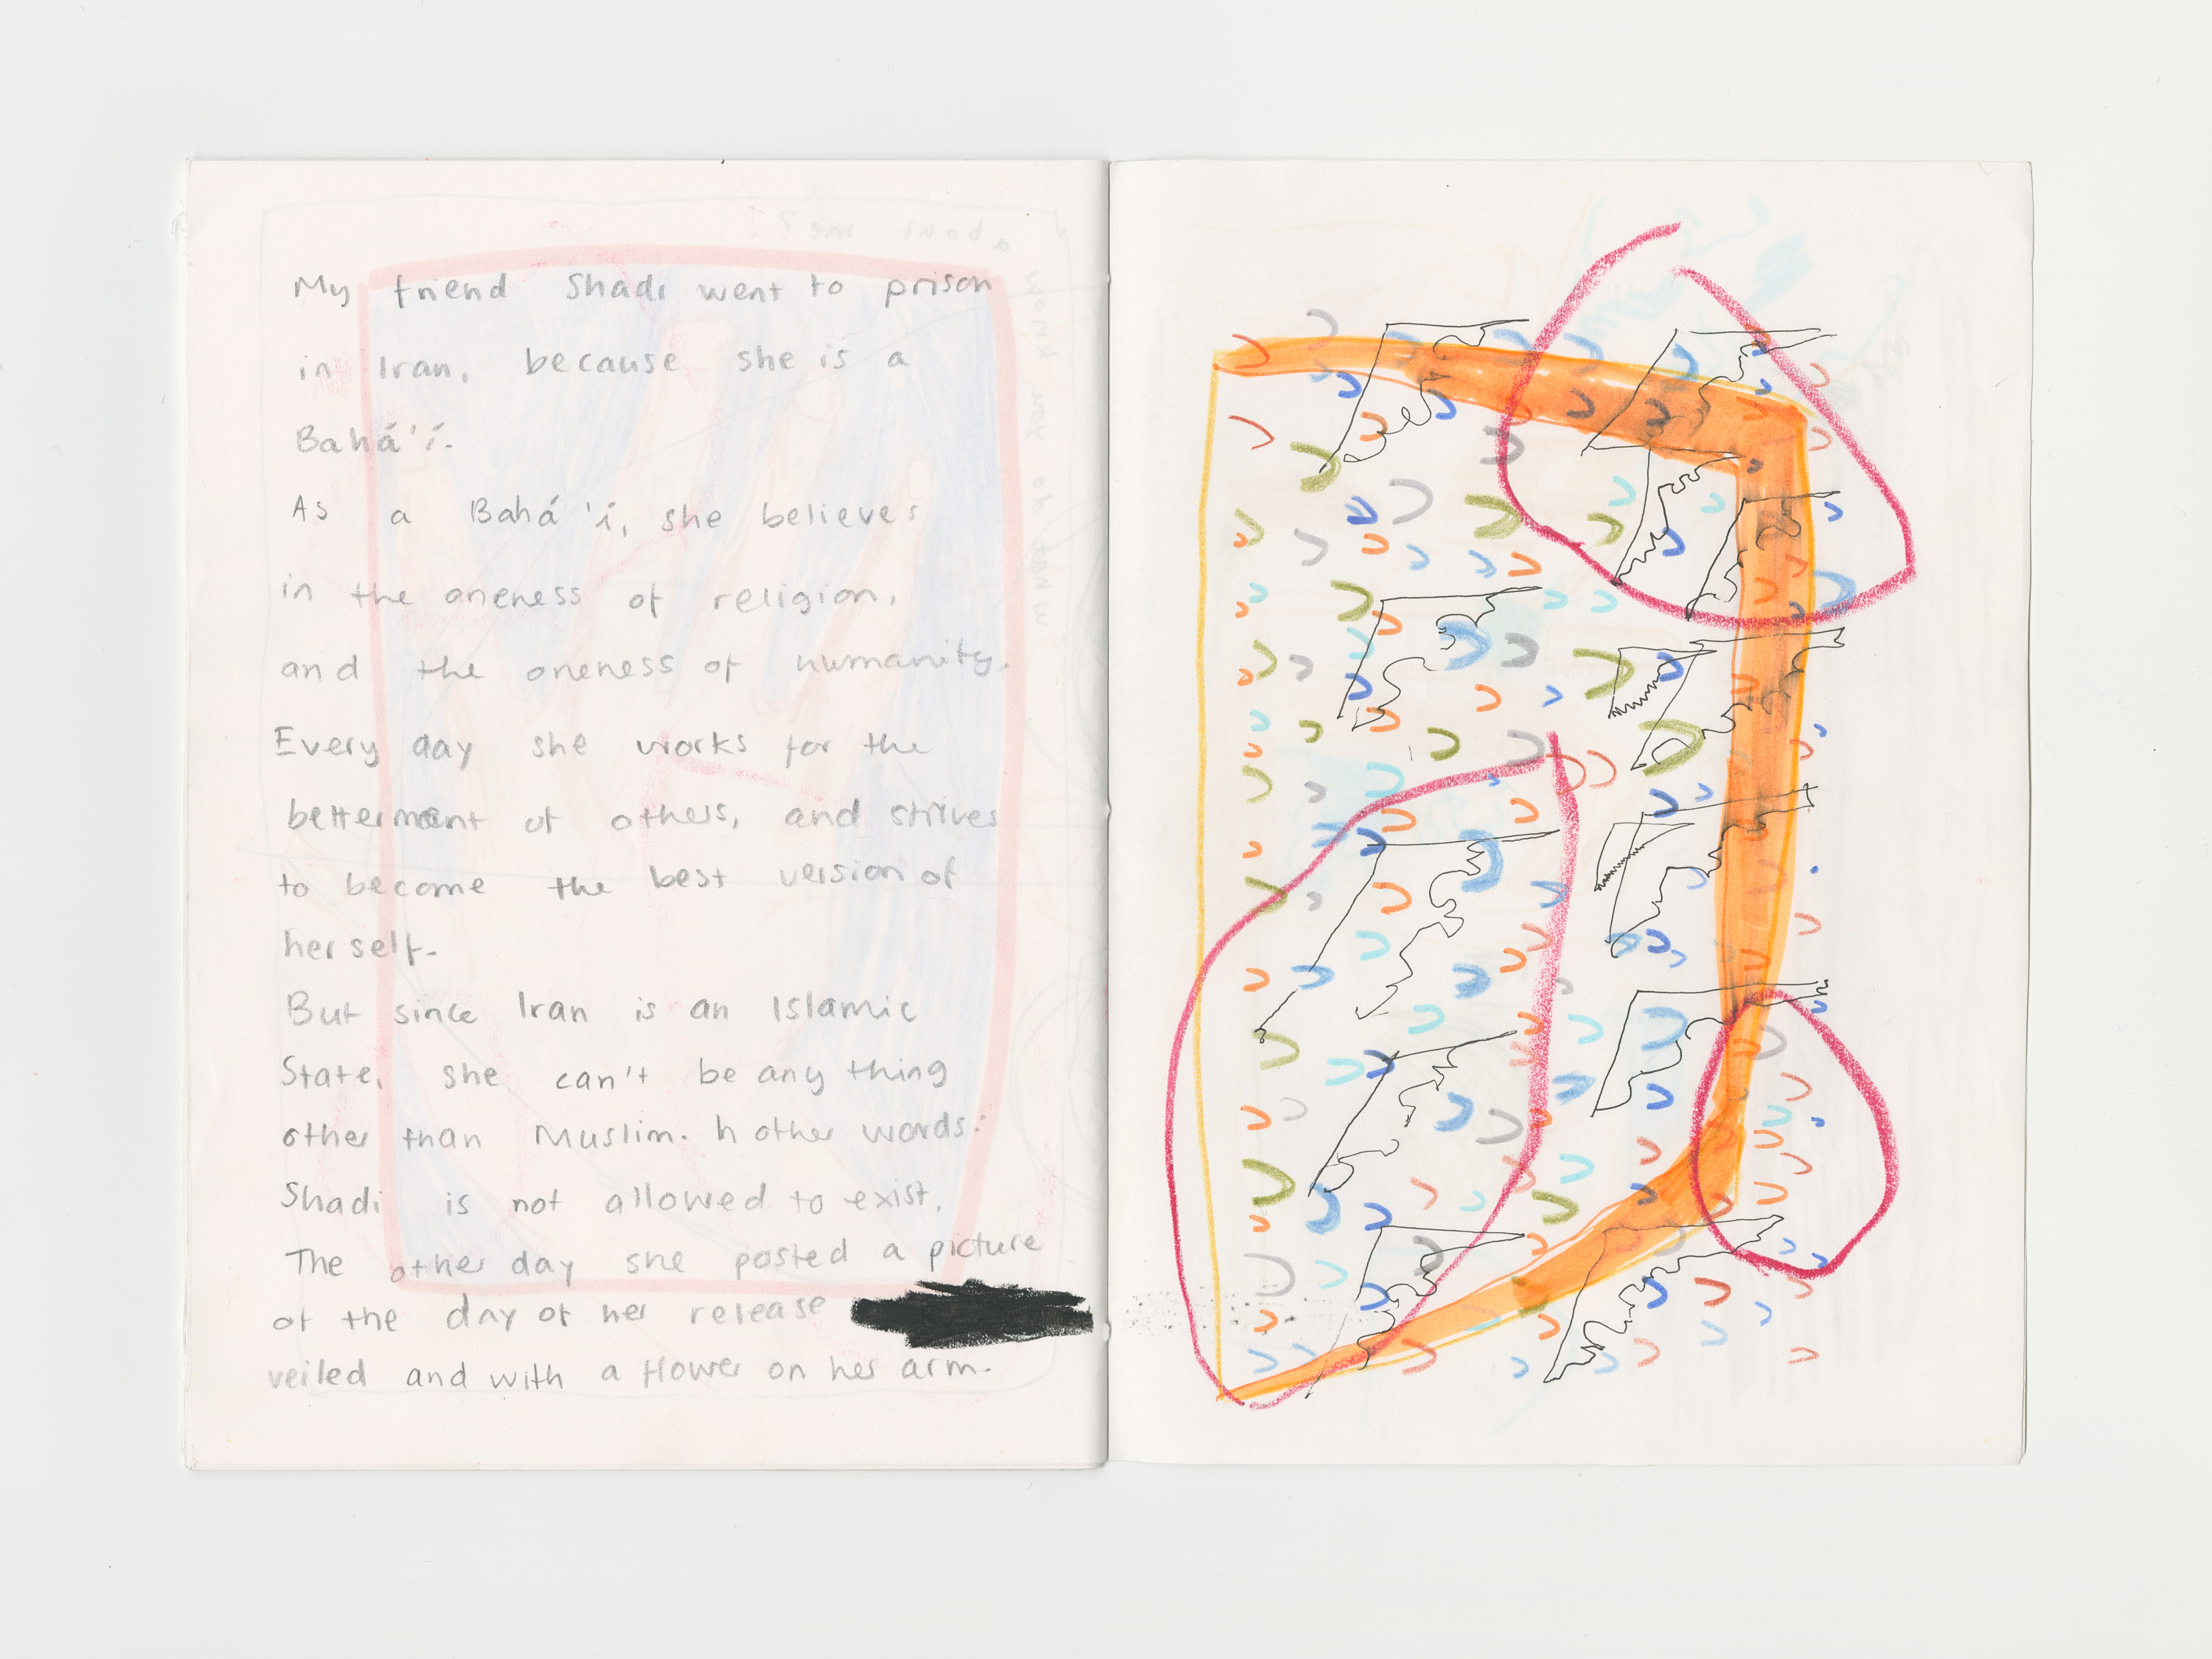 My friend Shadi went to prison
in Iran, because she is a
Bahá'í.
As a Bahá'í, she believes
in the oneness of religion,
and the oneness of humanity.
Every day she works for the
betterment of others, and strives
to become the best version of
herself.
But since Iran is an Islamic
State, she can't be any thing
other than Muslim. In other words:
Shadi is not allowed to exist.
The other day she posted a picture
of the day of her release
veiled and with a flower on her arm.
what do you know
about me?